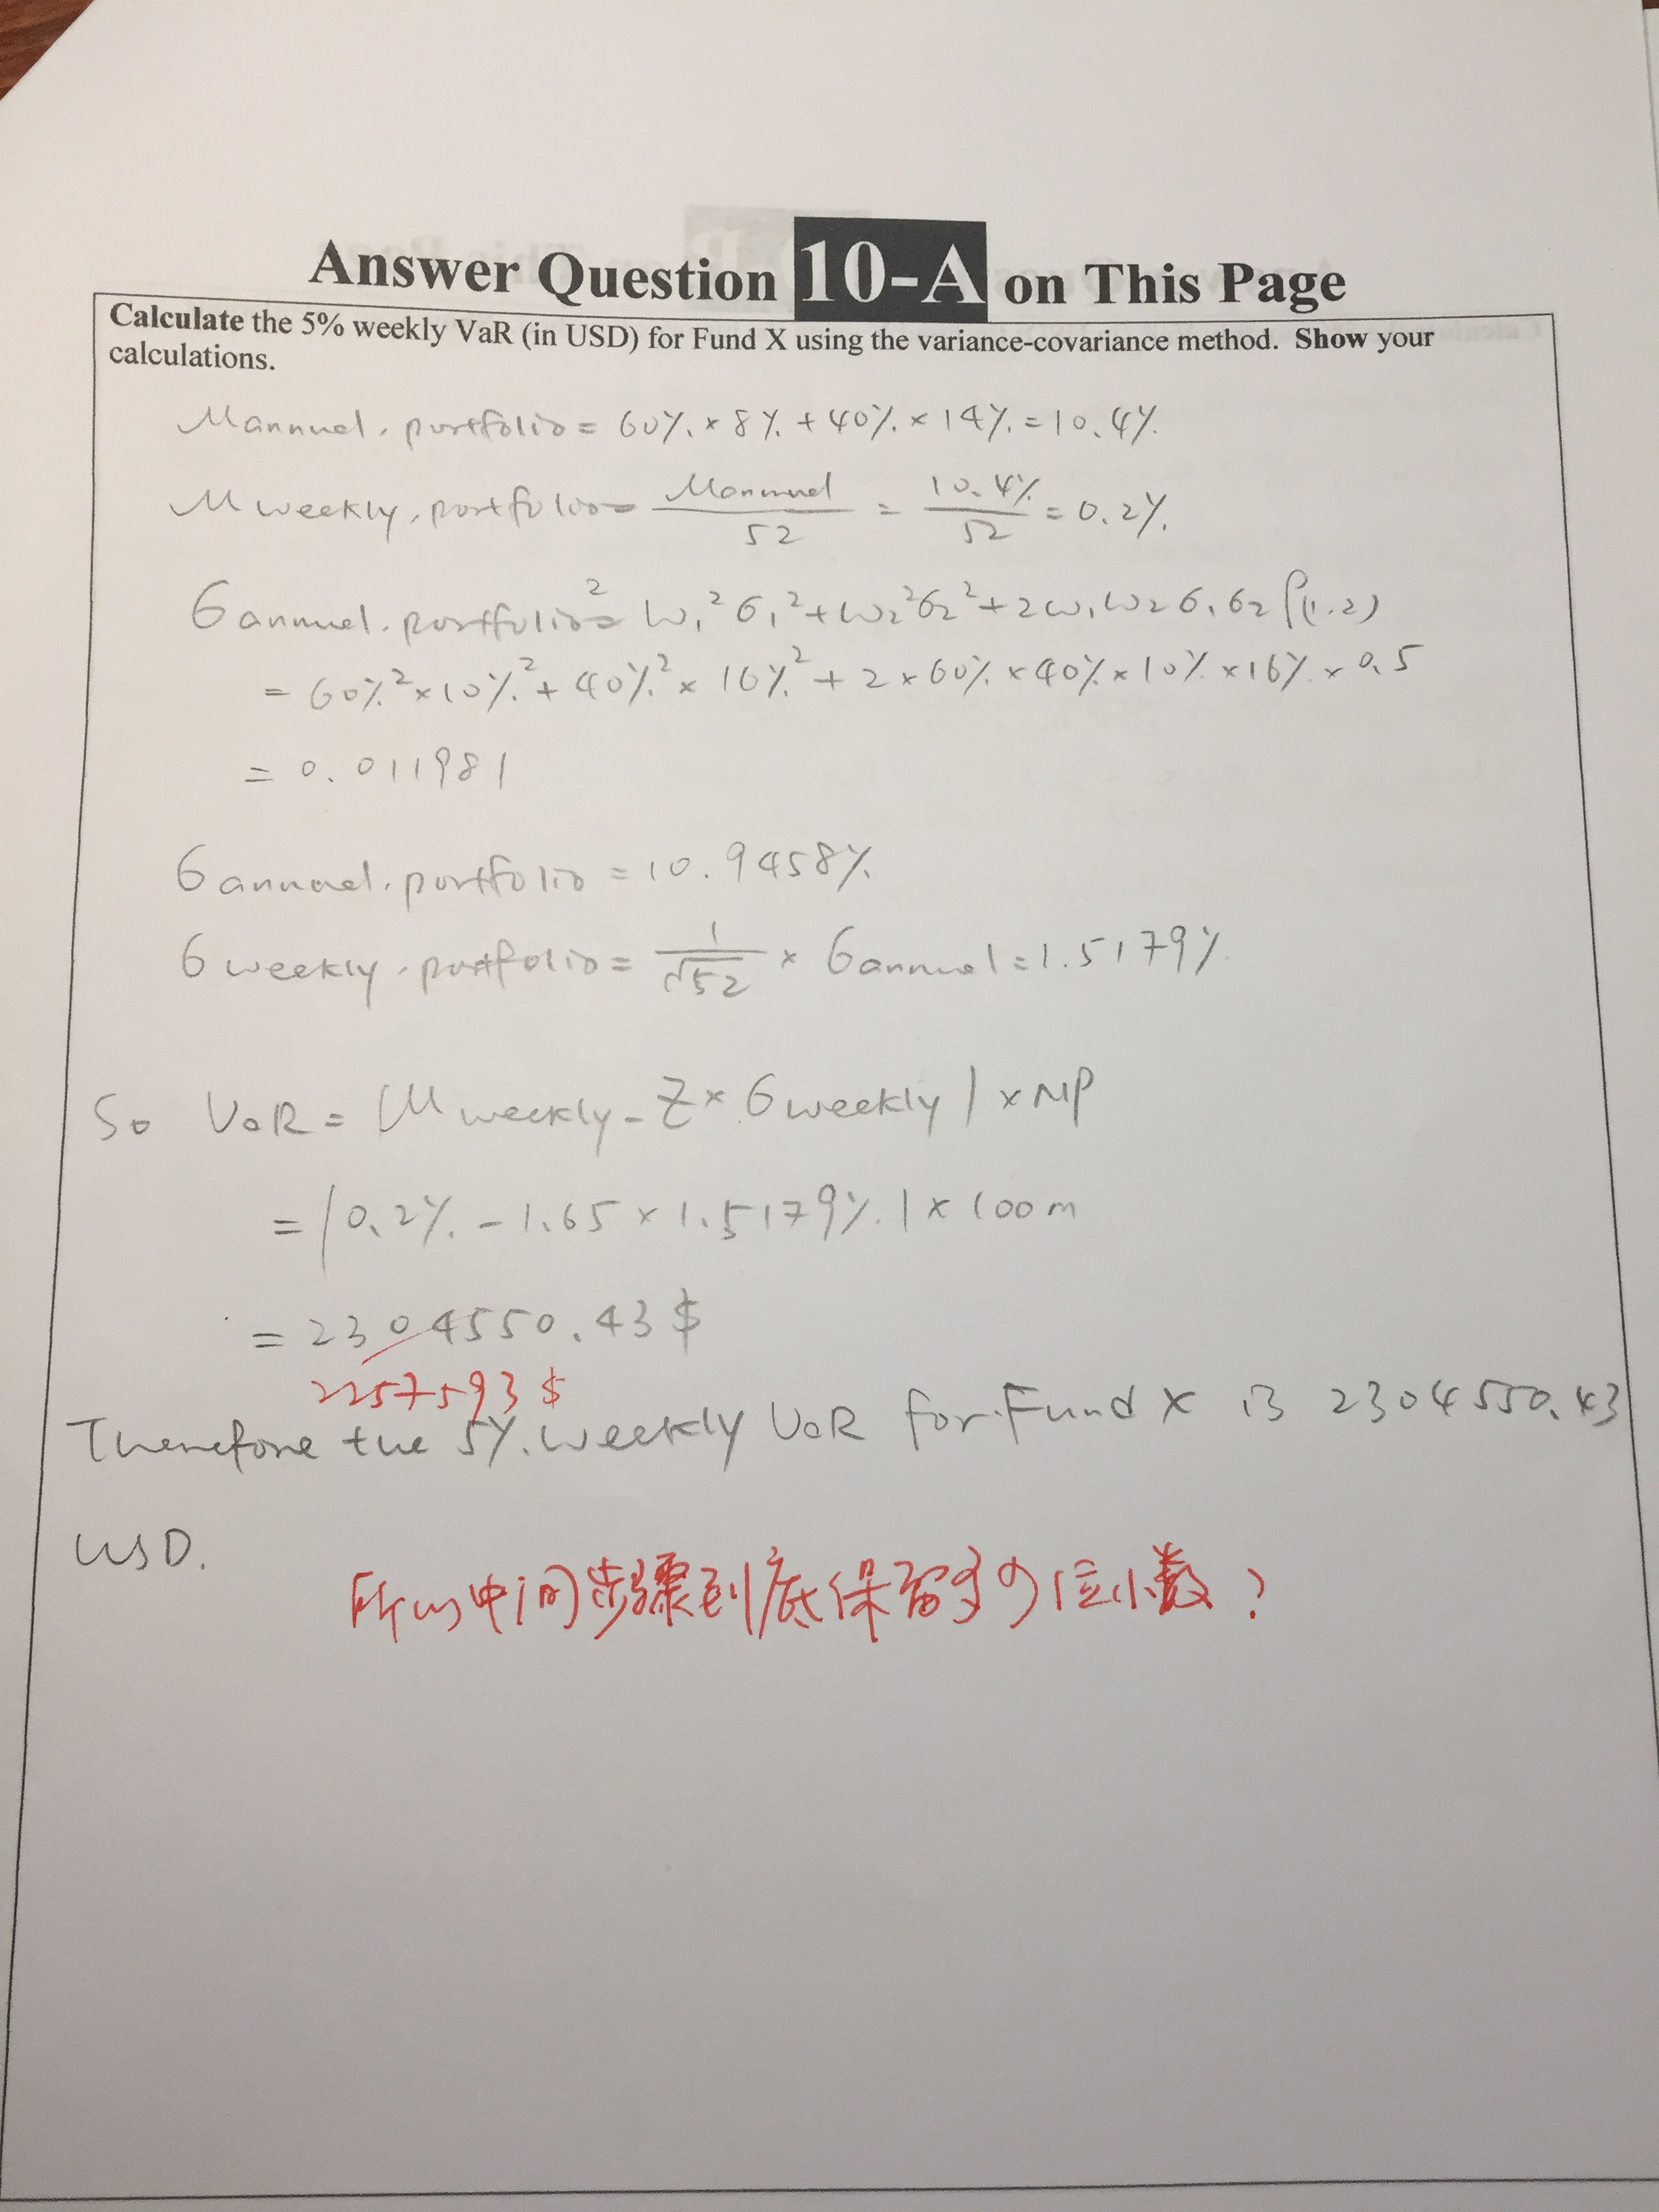 Answer Question 10-A on This Page
Calculate the 5% weekly VaR (in USD) for Fund X using the variance-covariance method. Show your
calculations.
μannual.portfolio = 60% × 8% + 40% × 14% = 10.4%
μweekly.portfolio = μannual / 52 = 10.4% / 52 = 0.2%
σannual.portfolio² = w₁²σ₁² + w₂²σ₂² + 2w₁w₂σ₁σ₂ρ(1.2)
= 60%² × 10%² + 40%² × 16%² + 2 × 60% × 40% × 10% × 16% × 0.5
= 0.011981
σannual.portfolio = 10.9458%
σweekly.portfolio = 1/√52 × σannual = 1.5179%
So VaR = |μweekly - Z × σweekly| × NP
= |0.2% - 1.65 × 1.5179%| × 100m
= 2304550.43 $
2257593 $
Therefore the 5% weekly VaR for Fund X is 2304550.43
USD.
所以中间步骤到底保留多少位小数?